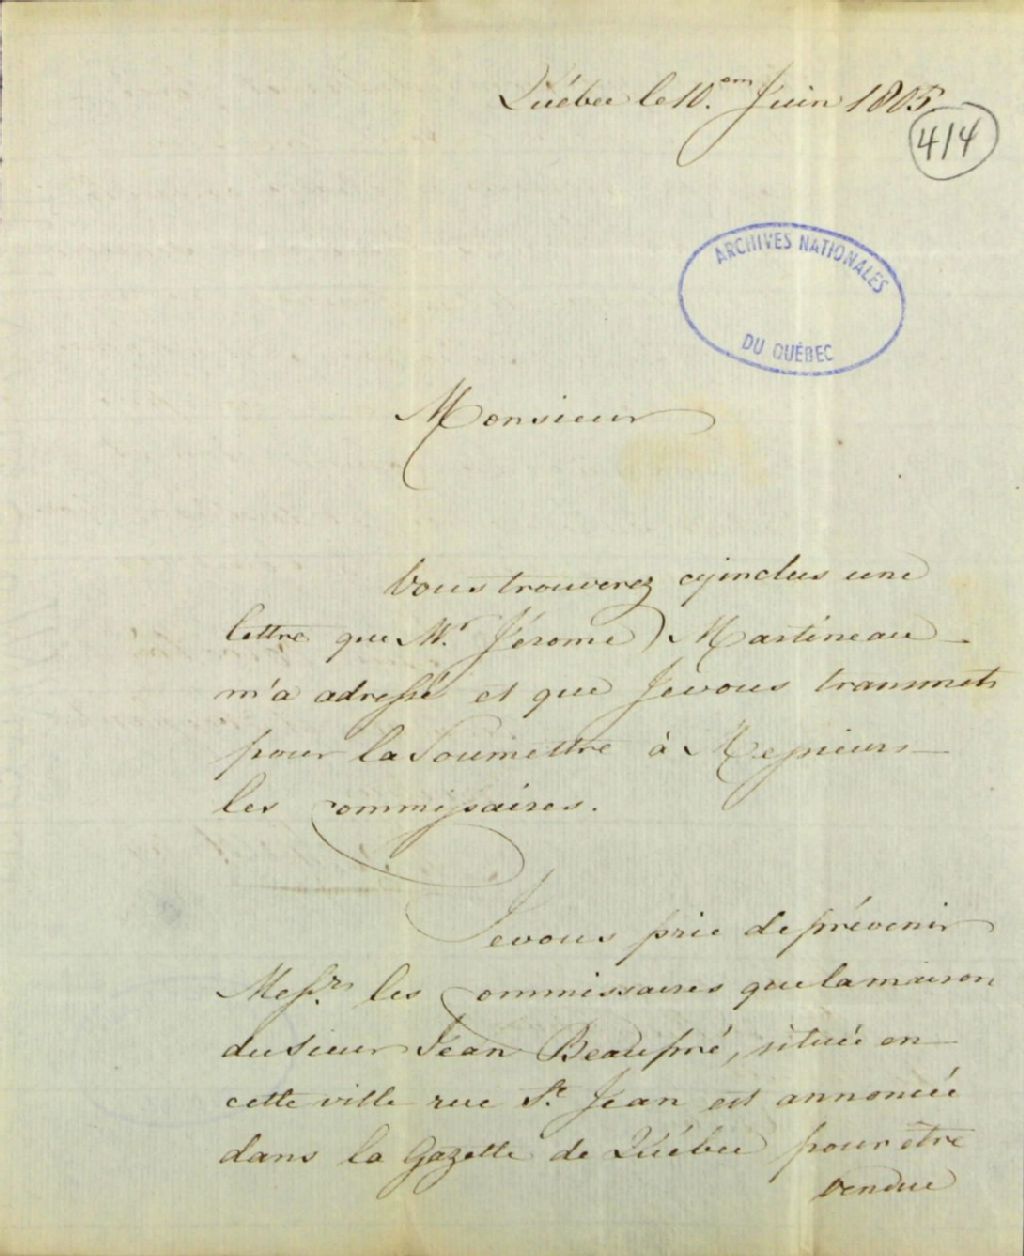 Québec le 10.em Juin 1805.
414
ARCHIVES NATIONALES
DU QUÉBEC
Monsieur
Vous trouverez cyinclus une
lettre que Mr. Jérome Martineau
m'a adressé et que Je vous transmets
pour la Soumettre à Messieurs
les Commissaires.
Je vous prie de prévenir
Messrs. les Commissaires que la maison
du Sieur Jean Beaupré, située en
cette ville rue St. Jean est annoncée
dans la Gazette de Québec pour être
vendue